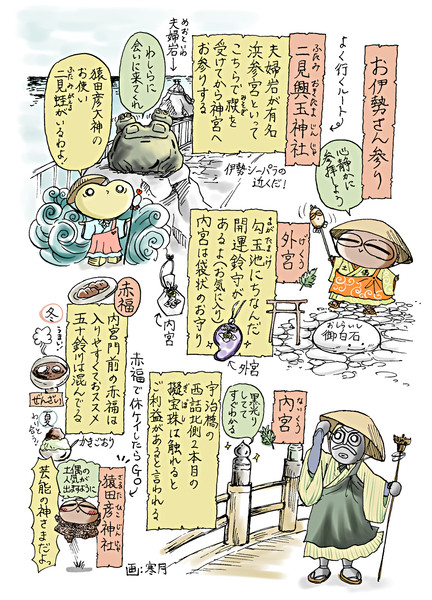 お伊勢さん参り
よく行くルート
二見興玉神社
ふたみ おきたま じん じゃ
夫婦岩が有名
浜参宮といって
こちらで禊を
みそぎ
受けてから神宮へ
お参りする
夫婦岩
めおといわ
わしらに
会いに来てくれ
猿田彦大神の
お使い
二見蛙がいるわよ♪
ふたみかえる
伊勢シーパラの
近くだ!
心静かに
参拝しよう
外宮
げくう
勾玉池にちなんだ
まがたまいけ
開運鈴守が
あるよ(お気に入り)
内宮は袋状のお守り
内宮
外宮
おしらいし
御白石
赤福
内宮門前の赤福は
入りやすくておススメ
五十鈴川は混んでる
冬
うまーい
ぜんざい
夏
わりと合う!
かきごおり
赤福で休けいしたらGO
内宮
ないくう
黒光り
してて
すぐわかる
宇治橋の
西詰北側2本目の
擬宝珠は触れると
ぎぼし
ご利益があると言われる
猿田彦神社
さるたひこじんじゃ
土偶の
人気が
出ますように
芸能の神さまだよっ
画:寒月